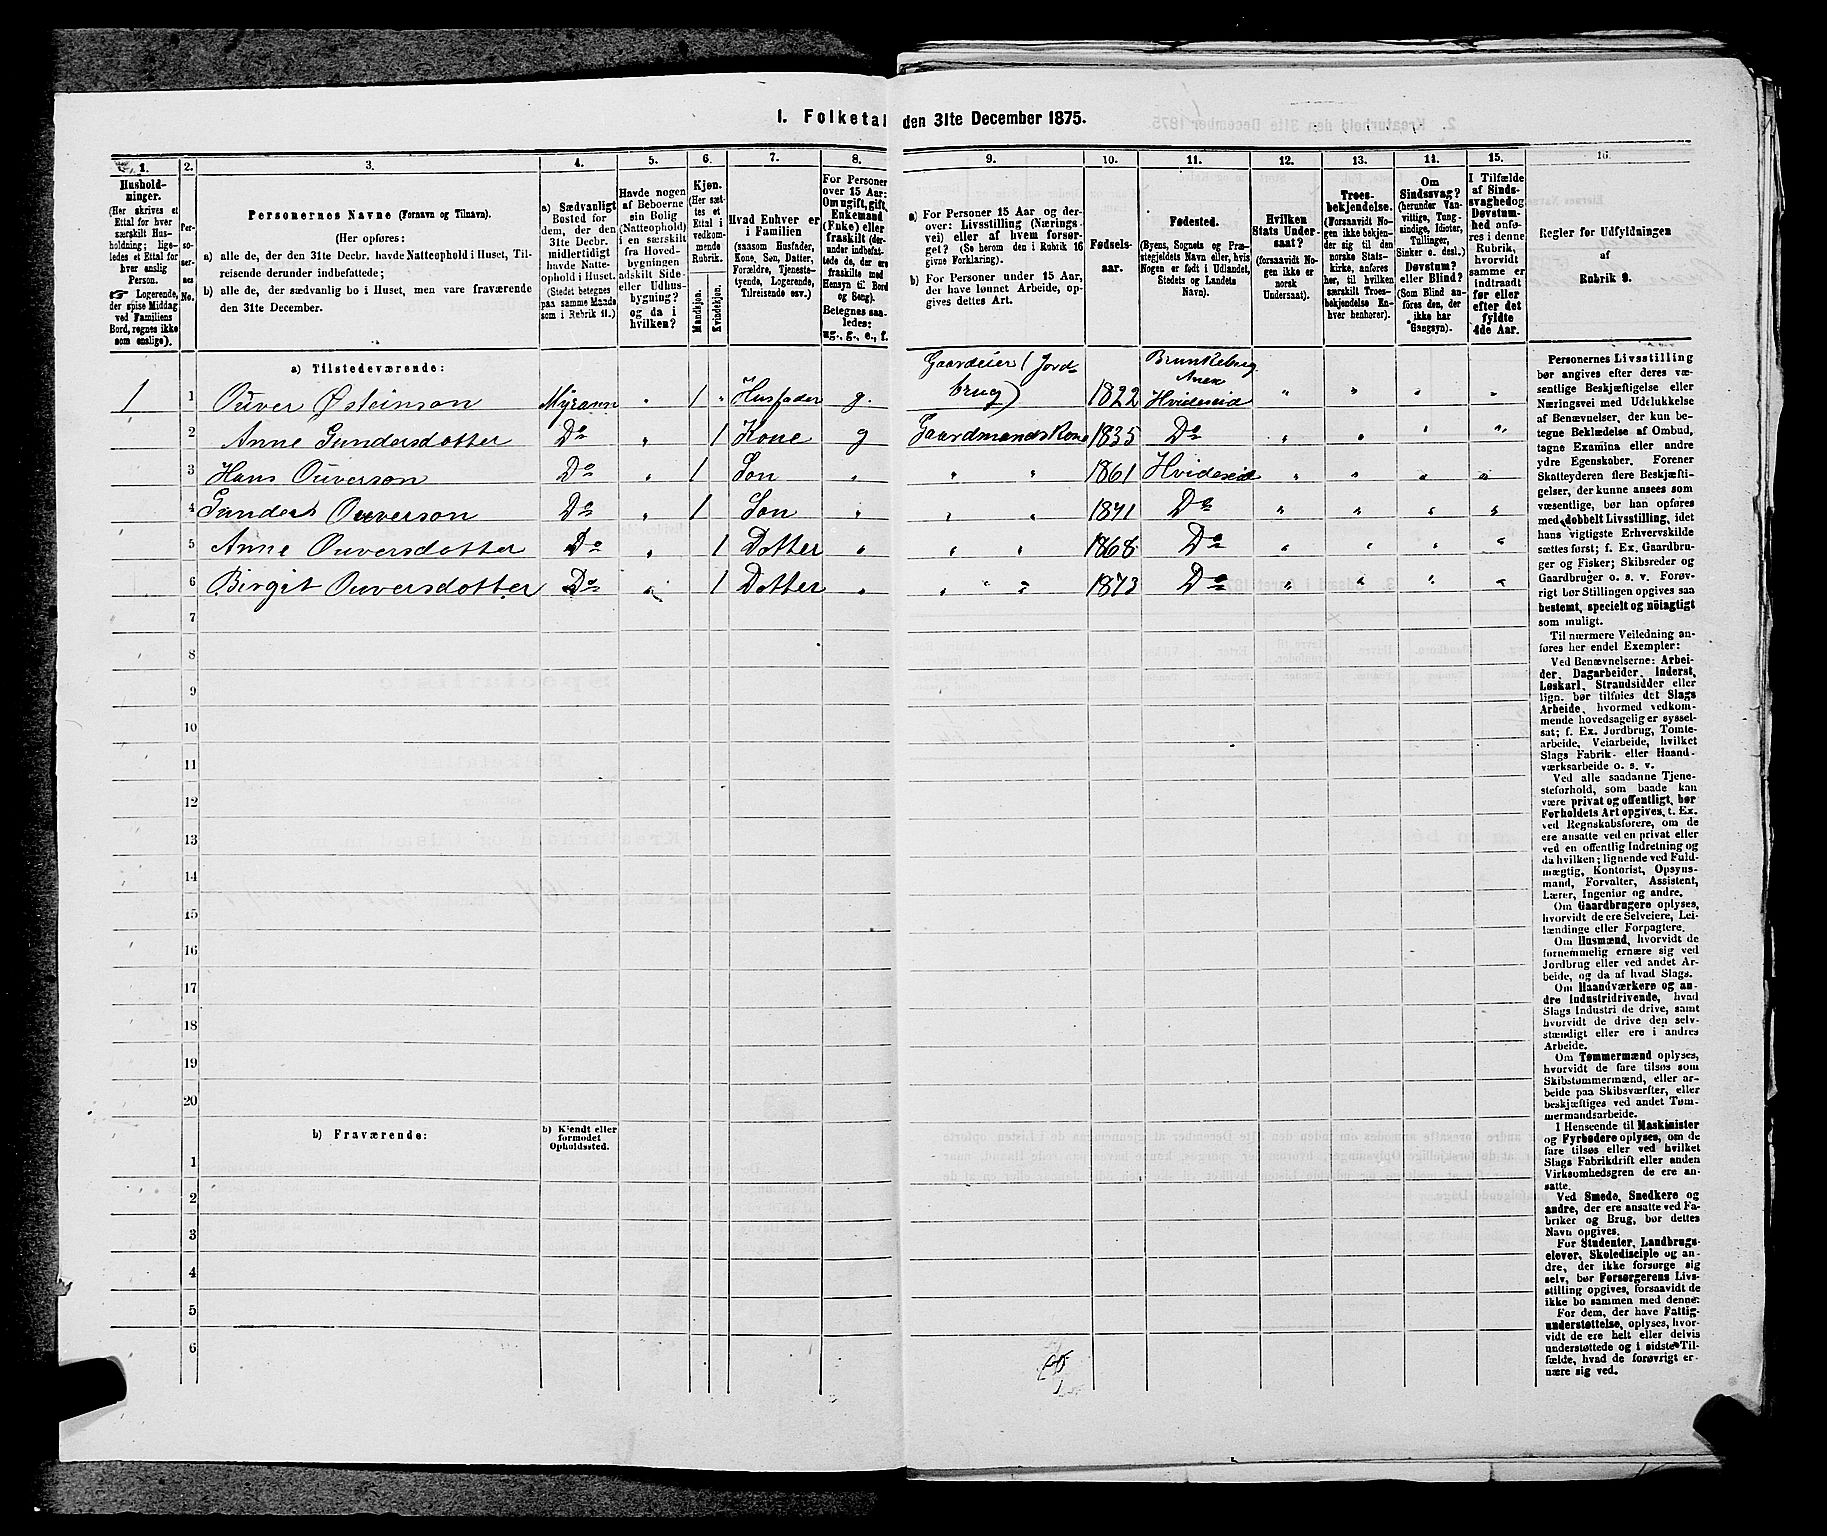 1. Folketal den 31te December 1875.
1.
2.
3.
4.
5.
6.
7.
8.
9.
10.
11.
12.
13.
14.
15.
16.
Husholdninger.
(Her skrives et
Ettal for hver
særskilt Husholdning;
ligeledes et Ettal for
hver enslig
Person.
☞ Logerende,
der spise Middag
ved Familiens
Bord, regnes ikke
som enslige).
Personernes No.
Personernes Navne (Fornavn og Tilnavn).
(Her opføres:
a) alle de, der den 31te Decbr. havde Natteophold i Huset, Tilreisende derunder indbefattede;
b) alle de, der sædvanlig bo i Huset, men vare fraværende
den 31te December.
a) Sædvanligt
Bosted for
dem, der den
31te Decbr.
midlertidigt
havde Natteophold
i Huset.
(Stedet betegnes
paa samme Maade
som i Rubrik 11.)
Havde nogen
af Beboerne
sin Bolig
(Natteophold)
i en særskilt
fra Hovedbygningen
adskilt Side-
eller Udhusbygning?
og da i
hvilken?
Kjøn.
(Her sættes et
Ettal i
vedkommende
Rubrik.
Mandkjøn.
Kvindekjøn.
Hvad Enhver er
i Familien
(saasom Husfader,
Kone, Søn, Datter,
Forældre, Tjenestetyende,
Logerende,
Tilreisende osv.)
For Personer
over 15 Aar:
Om ugift, gift,
Enkemand
(Enke) eller
fraskilt (derunder
indbefattede de, der ere
fraskilte med
Hensyn til Bord
og Seng).
Betegnes saaledes:
ug., g., e., f.
a) For Personer 15 Aar og derover:
Livsstilling (Næringsvei)
eller af hvem forsørget?
(Se herom den i Rubrik 16
givne Forklaring).
b) For Personer under 15 Aar,
der have lønnet Arbeide, opgives
dettes Art.
Fødselsaar.
Fødested.
(Byens, Sognets og Præstegjeldets
Navn eller, hvis
Nogen er født i Udlandet,
Stedets og Landets
Navn).
Hvilken
Stats Undersaat?
(forsaavidt Nogen
ikke er
norsk
Undersaat).
Troesbekjendelse.
(Forsaavidt Nogen
ikke bekjender
sig til den
norske Statskirke,
anføres
her, til hvilken
særskilt Troesbekjendelse
Enhver
henhører).
Om
Sindssvag?
(herunder Vanvittige,
Tungsindige, Idioter,
Tullinger,
Sinker o. desl.).
Døvstum?
eller Blind?
(Som Blind anføres
den, der
ikke har
Gangsyn).
I Tilfælde
af Sindssvaghed
og
Døvstumhed
anføres
i denne
Rubrik,
hvorvidt
samme er
indtraadt
før eller
efter det
fyldte
4de Aar.
Regler for Udfyldningen
af
Rubrik 9.
a) Tilstedeværende:
1 1 Ouver Østeinson Myrann " 1 " Husfader g. Gaardeier (Jordbrug) 1822 Brunkeberg Anex Hvideseid " " " "
2 Anne Gundersdotter Do " 1 Kone g Gaardmandskone 1835 Do " " " "
3 Hans Ouverson Do " 1 Søn " " " 1861 Hvideseid " " " "
4 Gunder Ouverson Do " 1 Søn " " " 1871 Do " " " "
5 Anne Ouversdotter Do " 1 Dotter " " " 1868 Do " " " "
6 Birgit Ouversdotter Do " 1 Dotter " " " 1873 Do " " " "
7
8
9
10
11
12
13
14
15
16
17
18
19
20
b) Fraværende:
b) Kjendt eller
formodet
Opholdssted.
1
2
3
4
5
6
Personernes Livsstilling
bør angives efter deres væsentlige
Beskjæftigelse eller
Næringsvei med Udelukkelse
af Benævnelser, der kun betegne
Beklædelse af Ombud,
tagne Examina eller andre
ydre Egenskaber. Forener
Skatteyderen flere Beskjæftigelser,
der kunne ansees som
væsentlige, bør han opføres
med dobbelt Livsstilling, idet
hans vigtigste Erhvervskilde
sættes først; f. Ex. Gaardbruger
og Fisker; Skibsreder og
Gaardbruger o. s. v. Forøvrigt
bør Stillingen opgives saa
bestemt, specielt og nöiagtigt
som muligt.
Til nærmere Veiledning anføres
her endel Exempler:
Ved Benævnelserne: Arbeider,
Dagarbeider, Inderst,
Løskarl, Strandsidder eller
lign. bør tilføies det Slags
Arbeide, hvormed vedkommende
hovedsagelig er sysselsat;
f. Ex. Jordbrug, Tomtearbeide,
Veiarbeide, hvilket
Slags Fabrik- eller Haandværksarbeide
o. s. v.
Ved alle saadanne Tjenesteforhold,
som baade kan
være privat og offentligt, bør
Forholdets Art opgives, t. Ex.
ved Regnskabsførere, om de
ere ansatte ved en privat eller
ved en offentlig Indretning og
da hvilken; lignende ved Fuldmægtig,
Kontorist, Opsynsmand,
Forvalter, Assistent,
Lærer, Ingeniør og andre.
Om Gaardbrugere oplyses,
hvorvidt de ere Selveiere, Leilændinge
eller Forpagtere.
Om Husmænd, hvorvidt de
fornemmelig ernære sig ved
Jordbrug eller ved andet Arbeide,
og da af hvad Slags.
Om Haandværkere og andre
Industridrivende, hvad
Slags Industri de drive, samt
hvorvidt de drive den selvstændigt
eller ere i andres
Arbeide.
Om Tømmermænd oplyses,
hvorvidt de fare tilsøs som
Skibstømmermænd, eller arbeide
paa Skibsværfter, eller
beskjæftiges ved andet Tømmermandsarbeide.
I Henseende til Maskinister
og Fyrbødere oplyses, om de
fare tilsøs eller ved hvilket
Slags Fabrikdrift eller anden
Virksomhedsgren de ere ansatte.
Ved Smede, Snedkere og
andre, der ere ansatte ved Fabriker
og Brug, bør dettes
Navn opgives.
For Studenter, Landbrugselever,
Skoledisciple og andre,
der ikke forsørge sig
selv, bør Forsørgerens Livsstilling
opgives, forsaavidt de
ikke bo sammen med denne.
For dem, der have Fattigunderstøttelse,
oplyses, hvorvidt
de ere helt eller delvis
understøttede og i sidste Tilfælde,
hvad de forøvrigt ernære
sig ved.